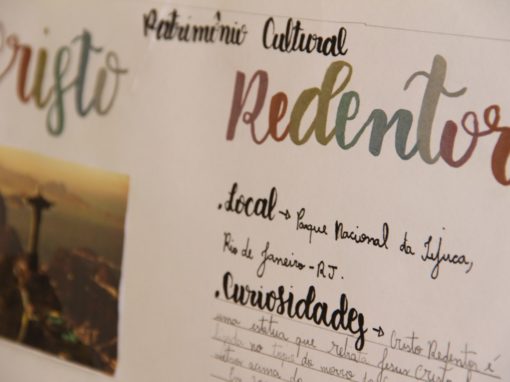 Patrimônio Cultural
Cristo Redentor
.Local → Parque Nacional da Tijuca,
Rio de Janeiro-RJ.
.Curiosidades → Cristo Redentor é
uma estátua que retrata Jesus Crist
no topo do morro
acima do